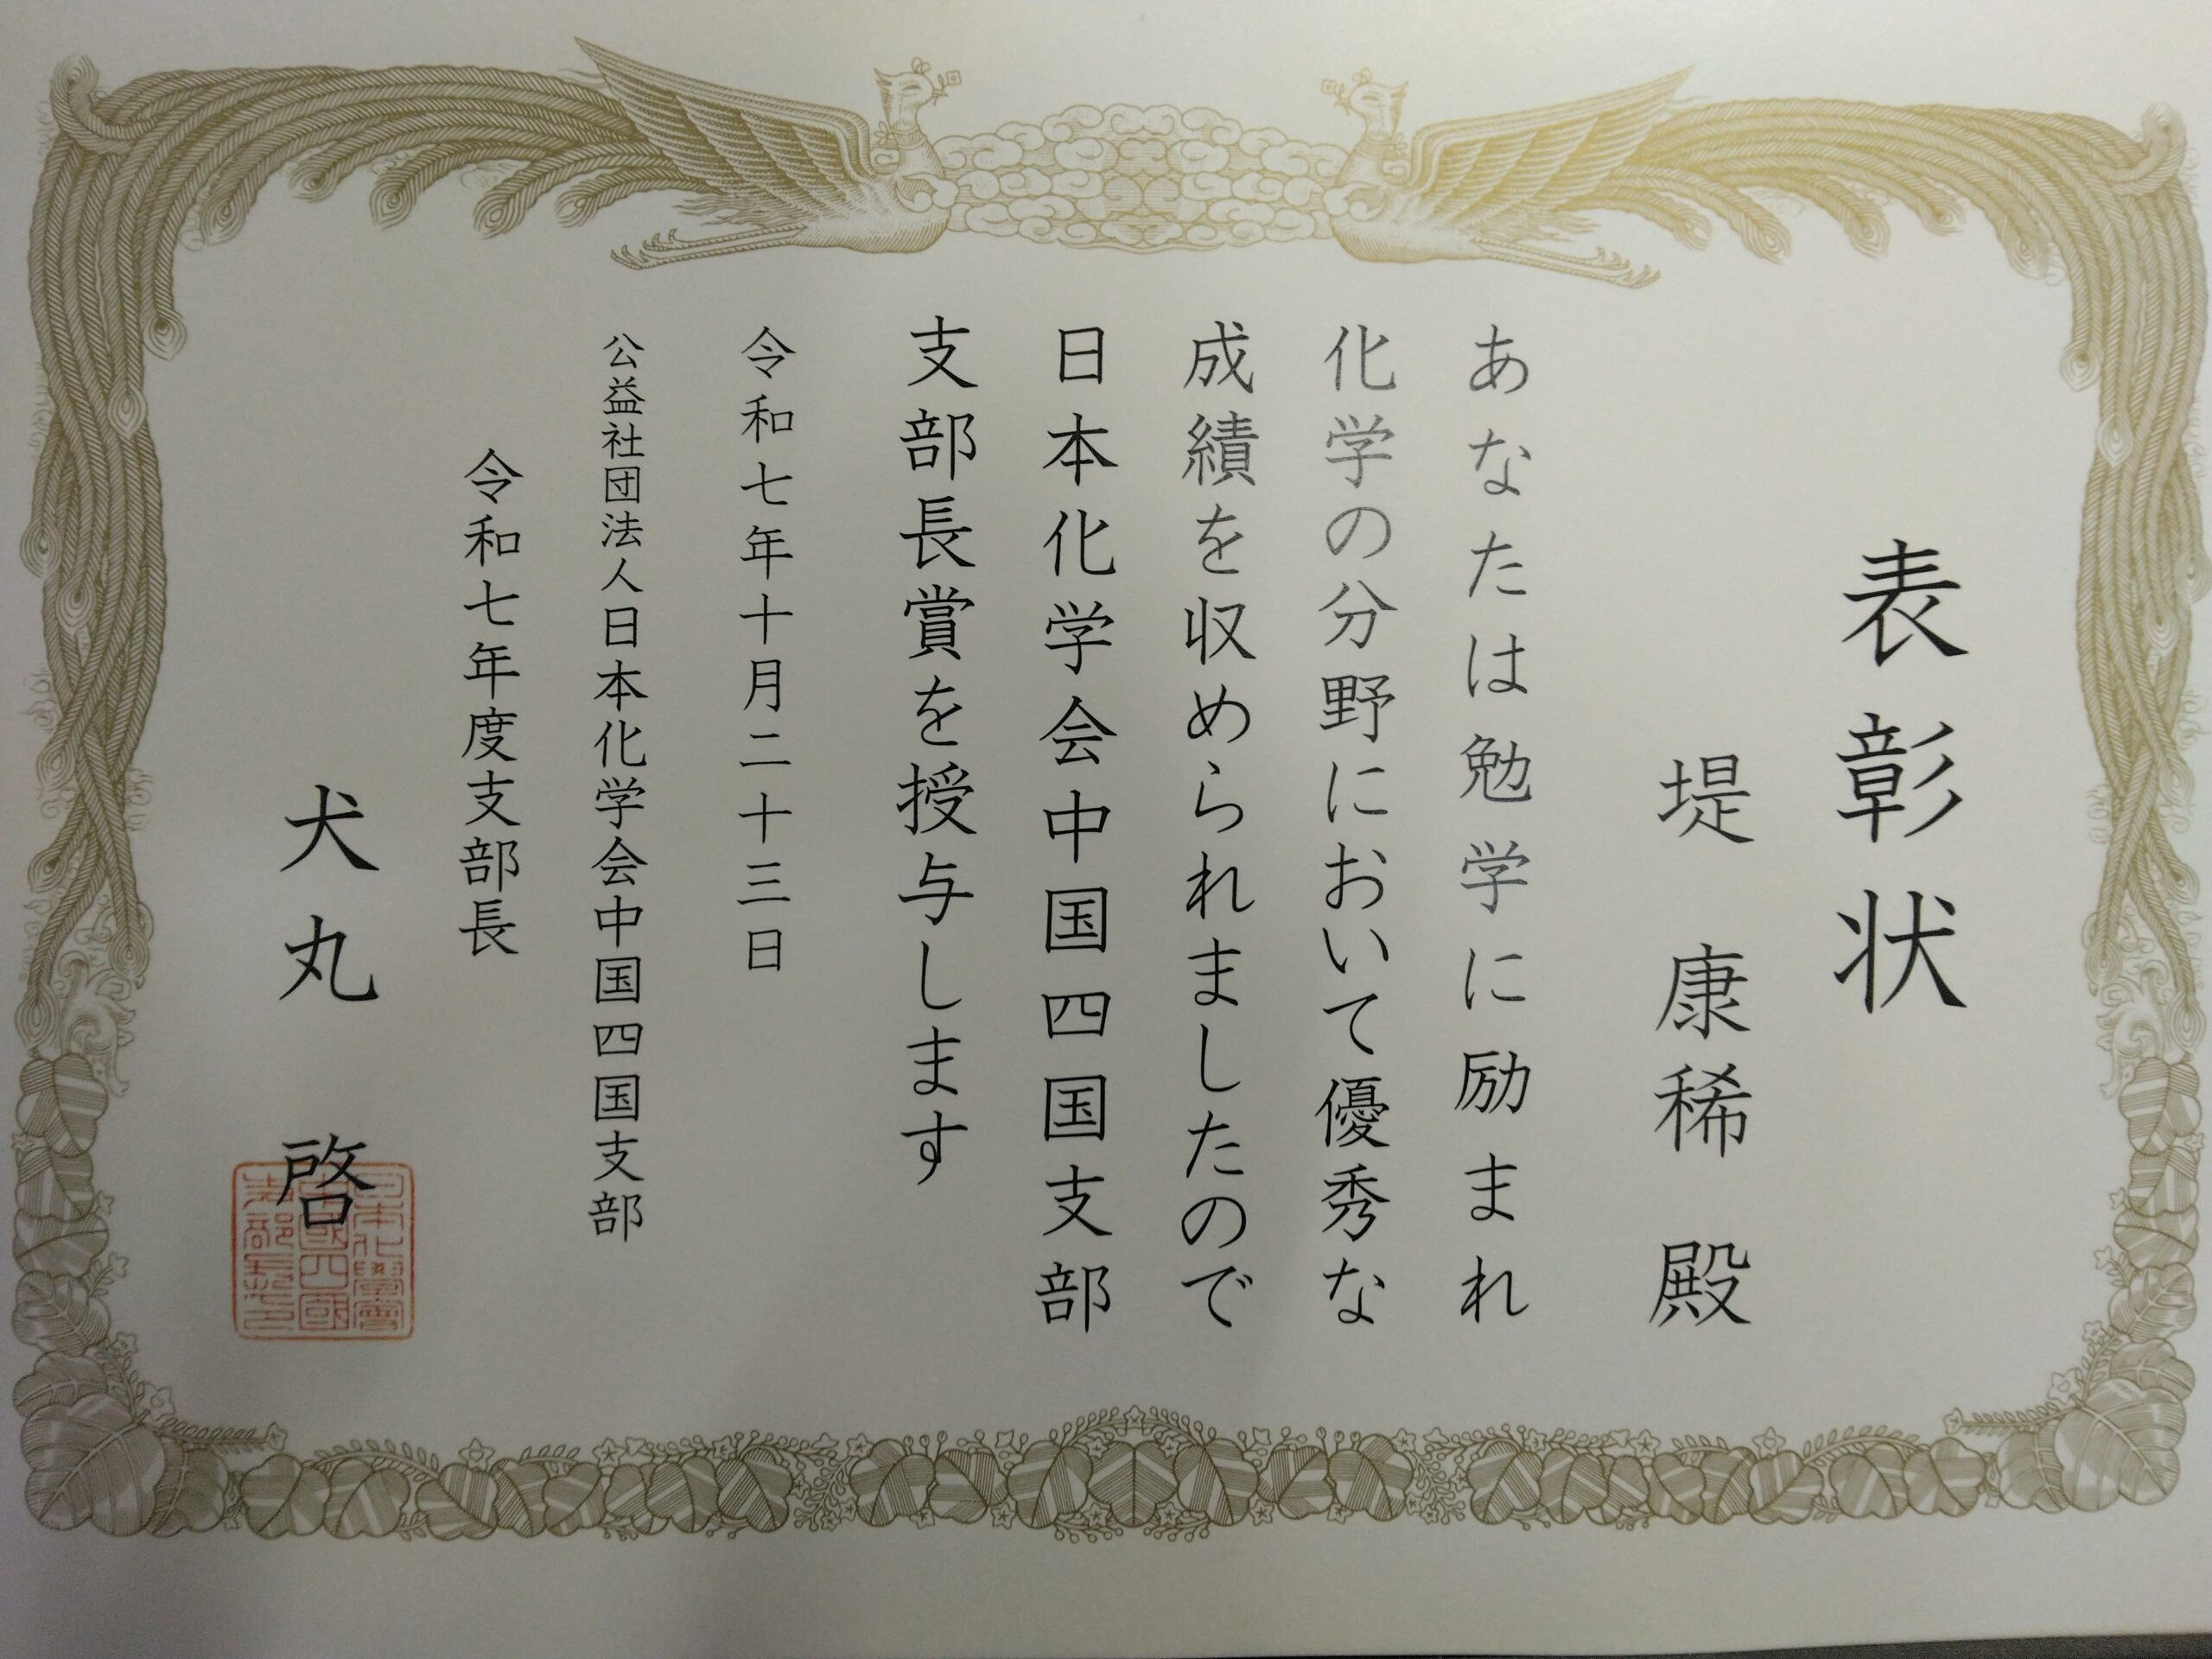 表彰状
堤 康稀 殿
あなたは勉学に励まれ
化学の分野において優秀な
成績を収められましたので
日本化学会中国四国支部
支部長賞を授与します
令和七年十月二十三日
公益社団法人日本化学会中国四国支部
令和七年度支部長
犬丸 啓
日本化學會
中國四國
支部長之印